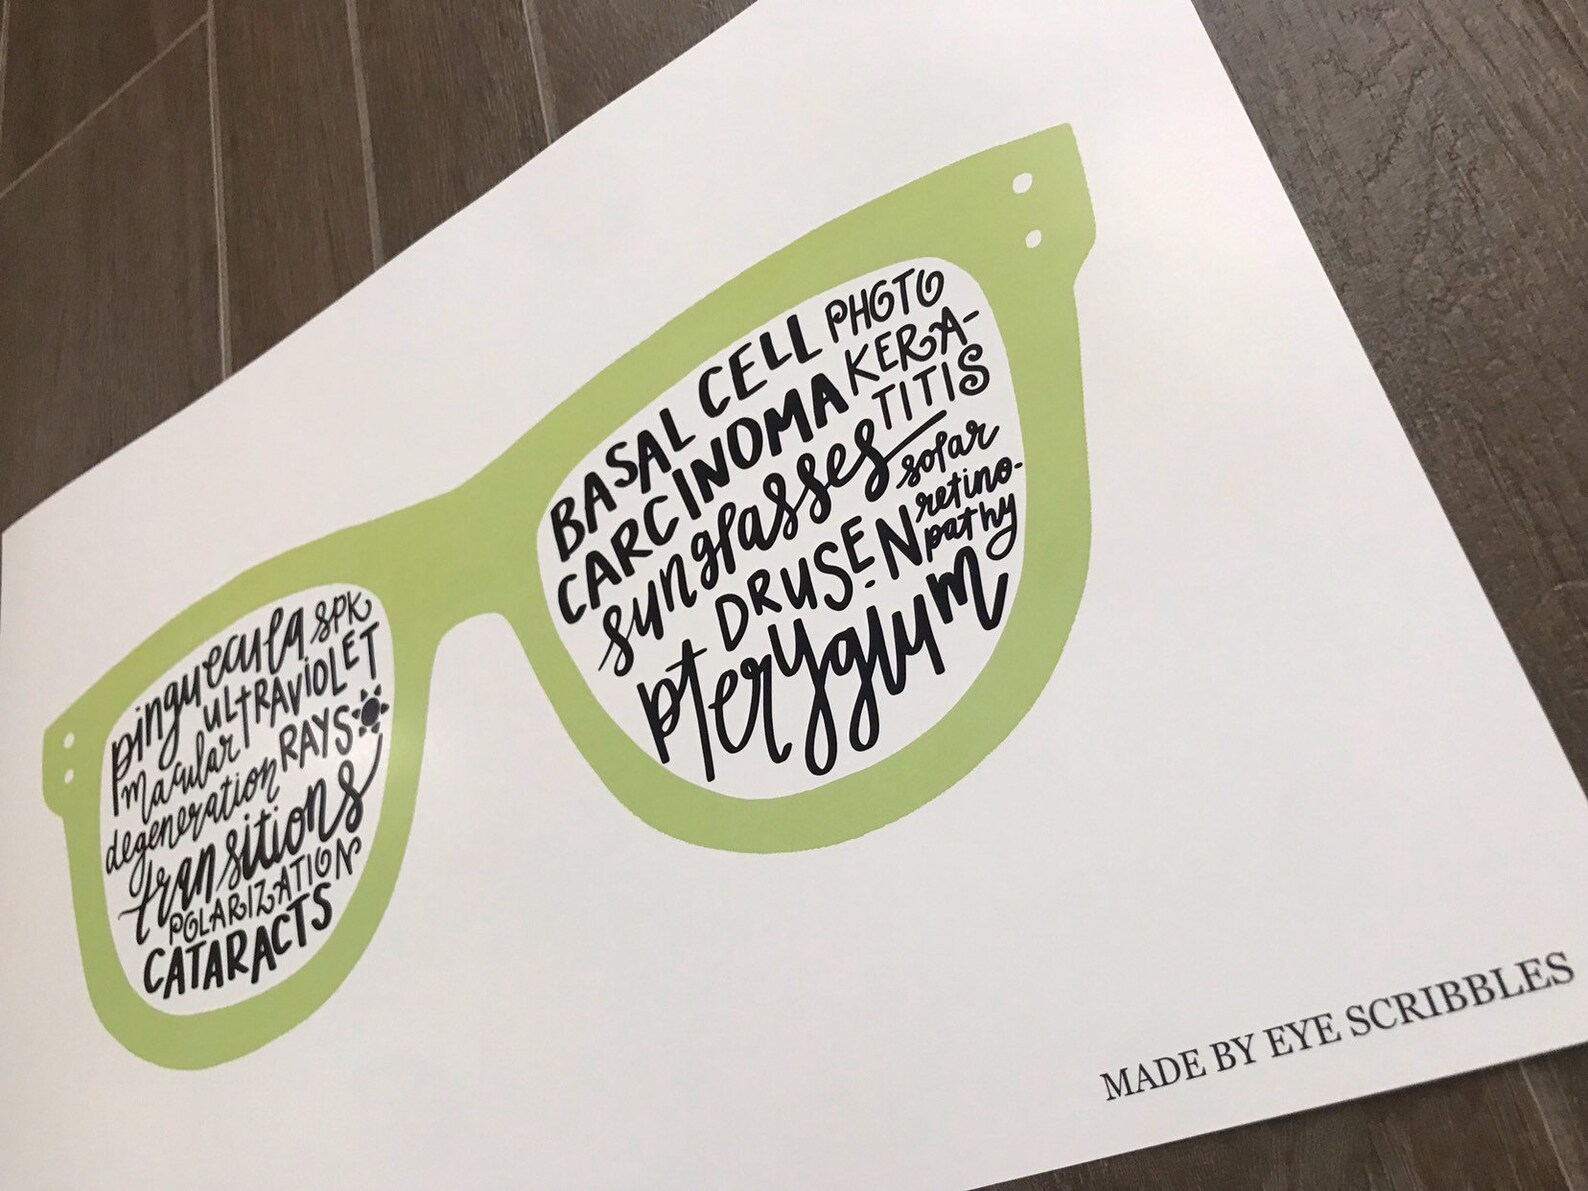 pinguecula SPK
ULTRAVIOLET
macular RAYS
degeneration
transitions
POLARIZATION
CATARACTS
BASAL CELL PHOTO
CARCINOMA KERA-
TITIS
sunglasses solar
DRUSEN retino-
pathy
pterygium
MADE BY EYE SCRIBBLES